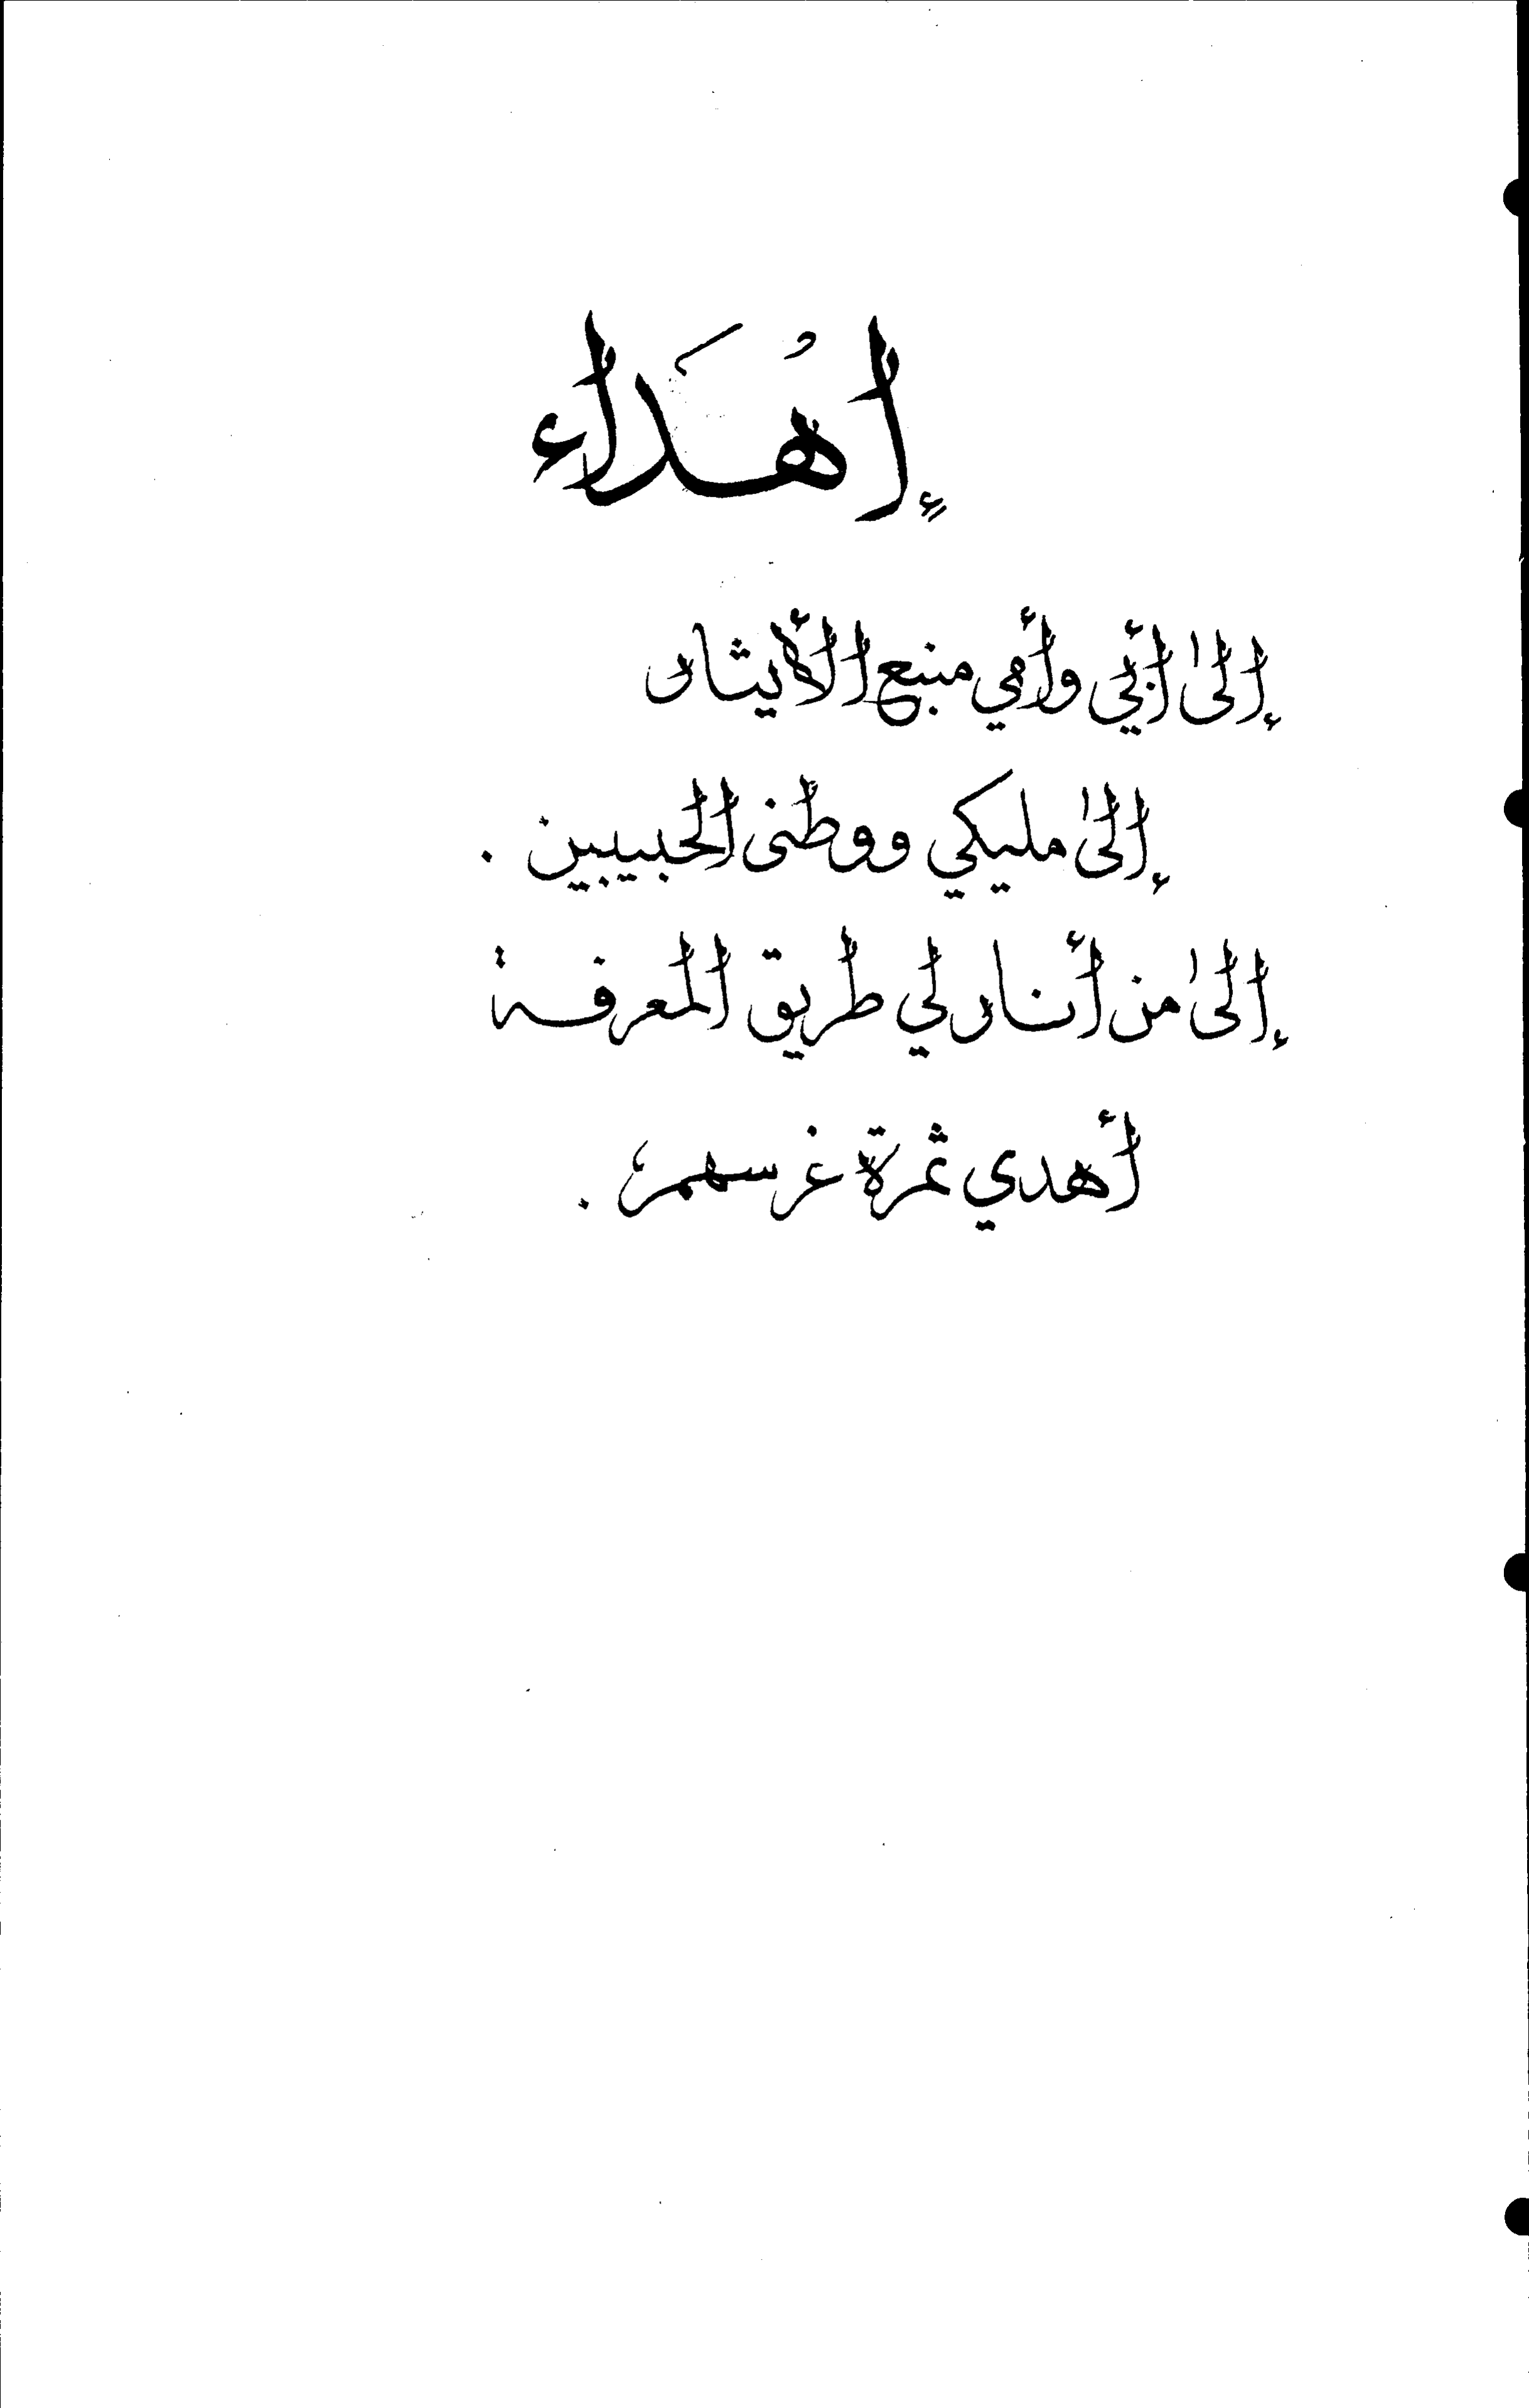 إهداء
إلى أبي وأمي منبع الأيثار
إلى مليكي ووطني الحبيبين .
إلى من أنار لي طريق المعرفة
أهدي ثمرة غرسهم .